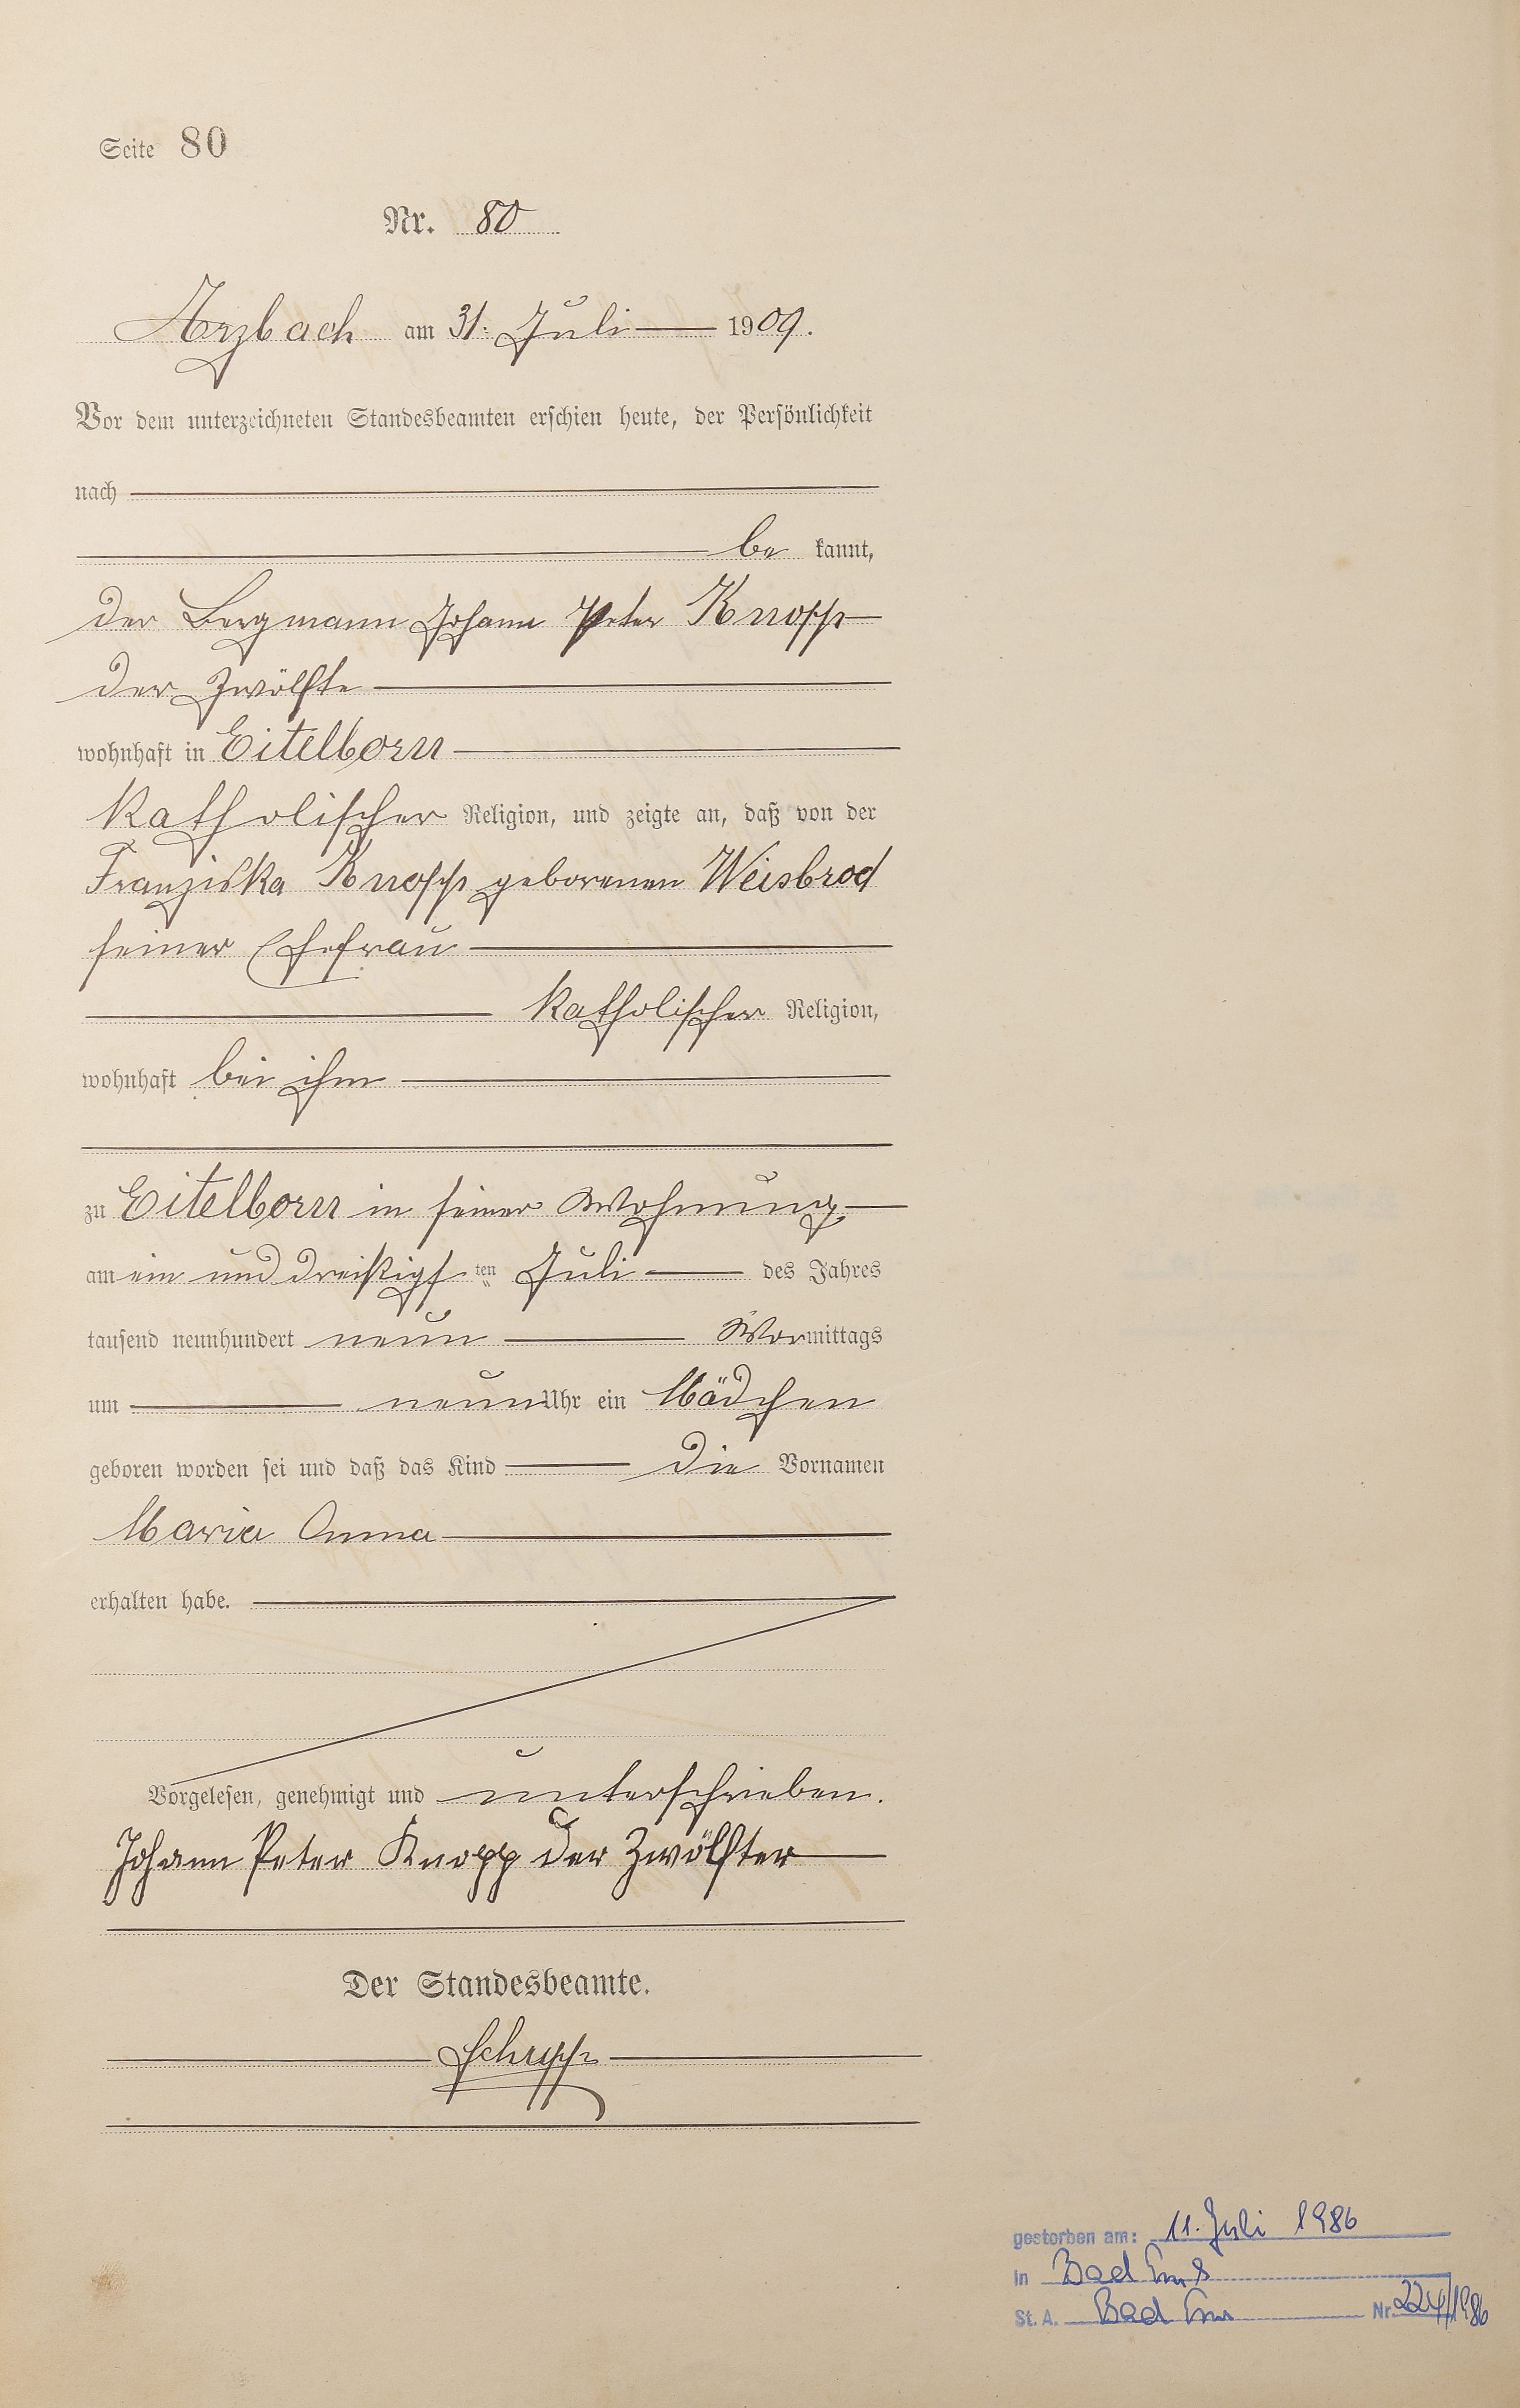 Seite 80
Nr. 80
Arzbach am 31. Juli 1909.
Vor dem unterzeichneten Standesbeamten erschien heute, der Persönlichkeit
nach
be kannt,
der Bergmann Johann Peter Knopp
der Zwölfte
wohnhaft in Eitelborn
katholischer Religion, und zeigte an, daß von der
Franziska Knopp geborenen Weisbrod
seiner Ehefrau
katholischer Religion,
wohnhaft bei ihm
zu Eitelborn in seiner Wohnung
am ein und dreißigsten Juli des Jahres
tausend neunhundert neun Vormittags
um neun Uhr ein Mädchen
geboren worden sei und daß das Kind die Vornamen
Maria Anna
erhalten habe.
Vorgelesen, genehmigt und unterschrieben.
Johann Peter Knopp der Zwölfter
Der Standesbeamte.
gestorben am: 11. Juli 1986
in Bad Ems
St. A. Bad Ems Nr. 224/1986